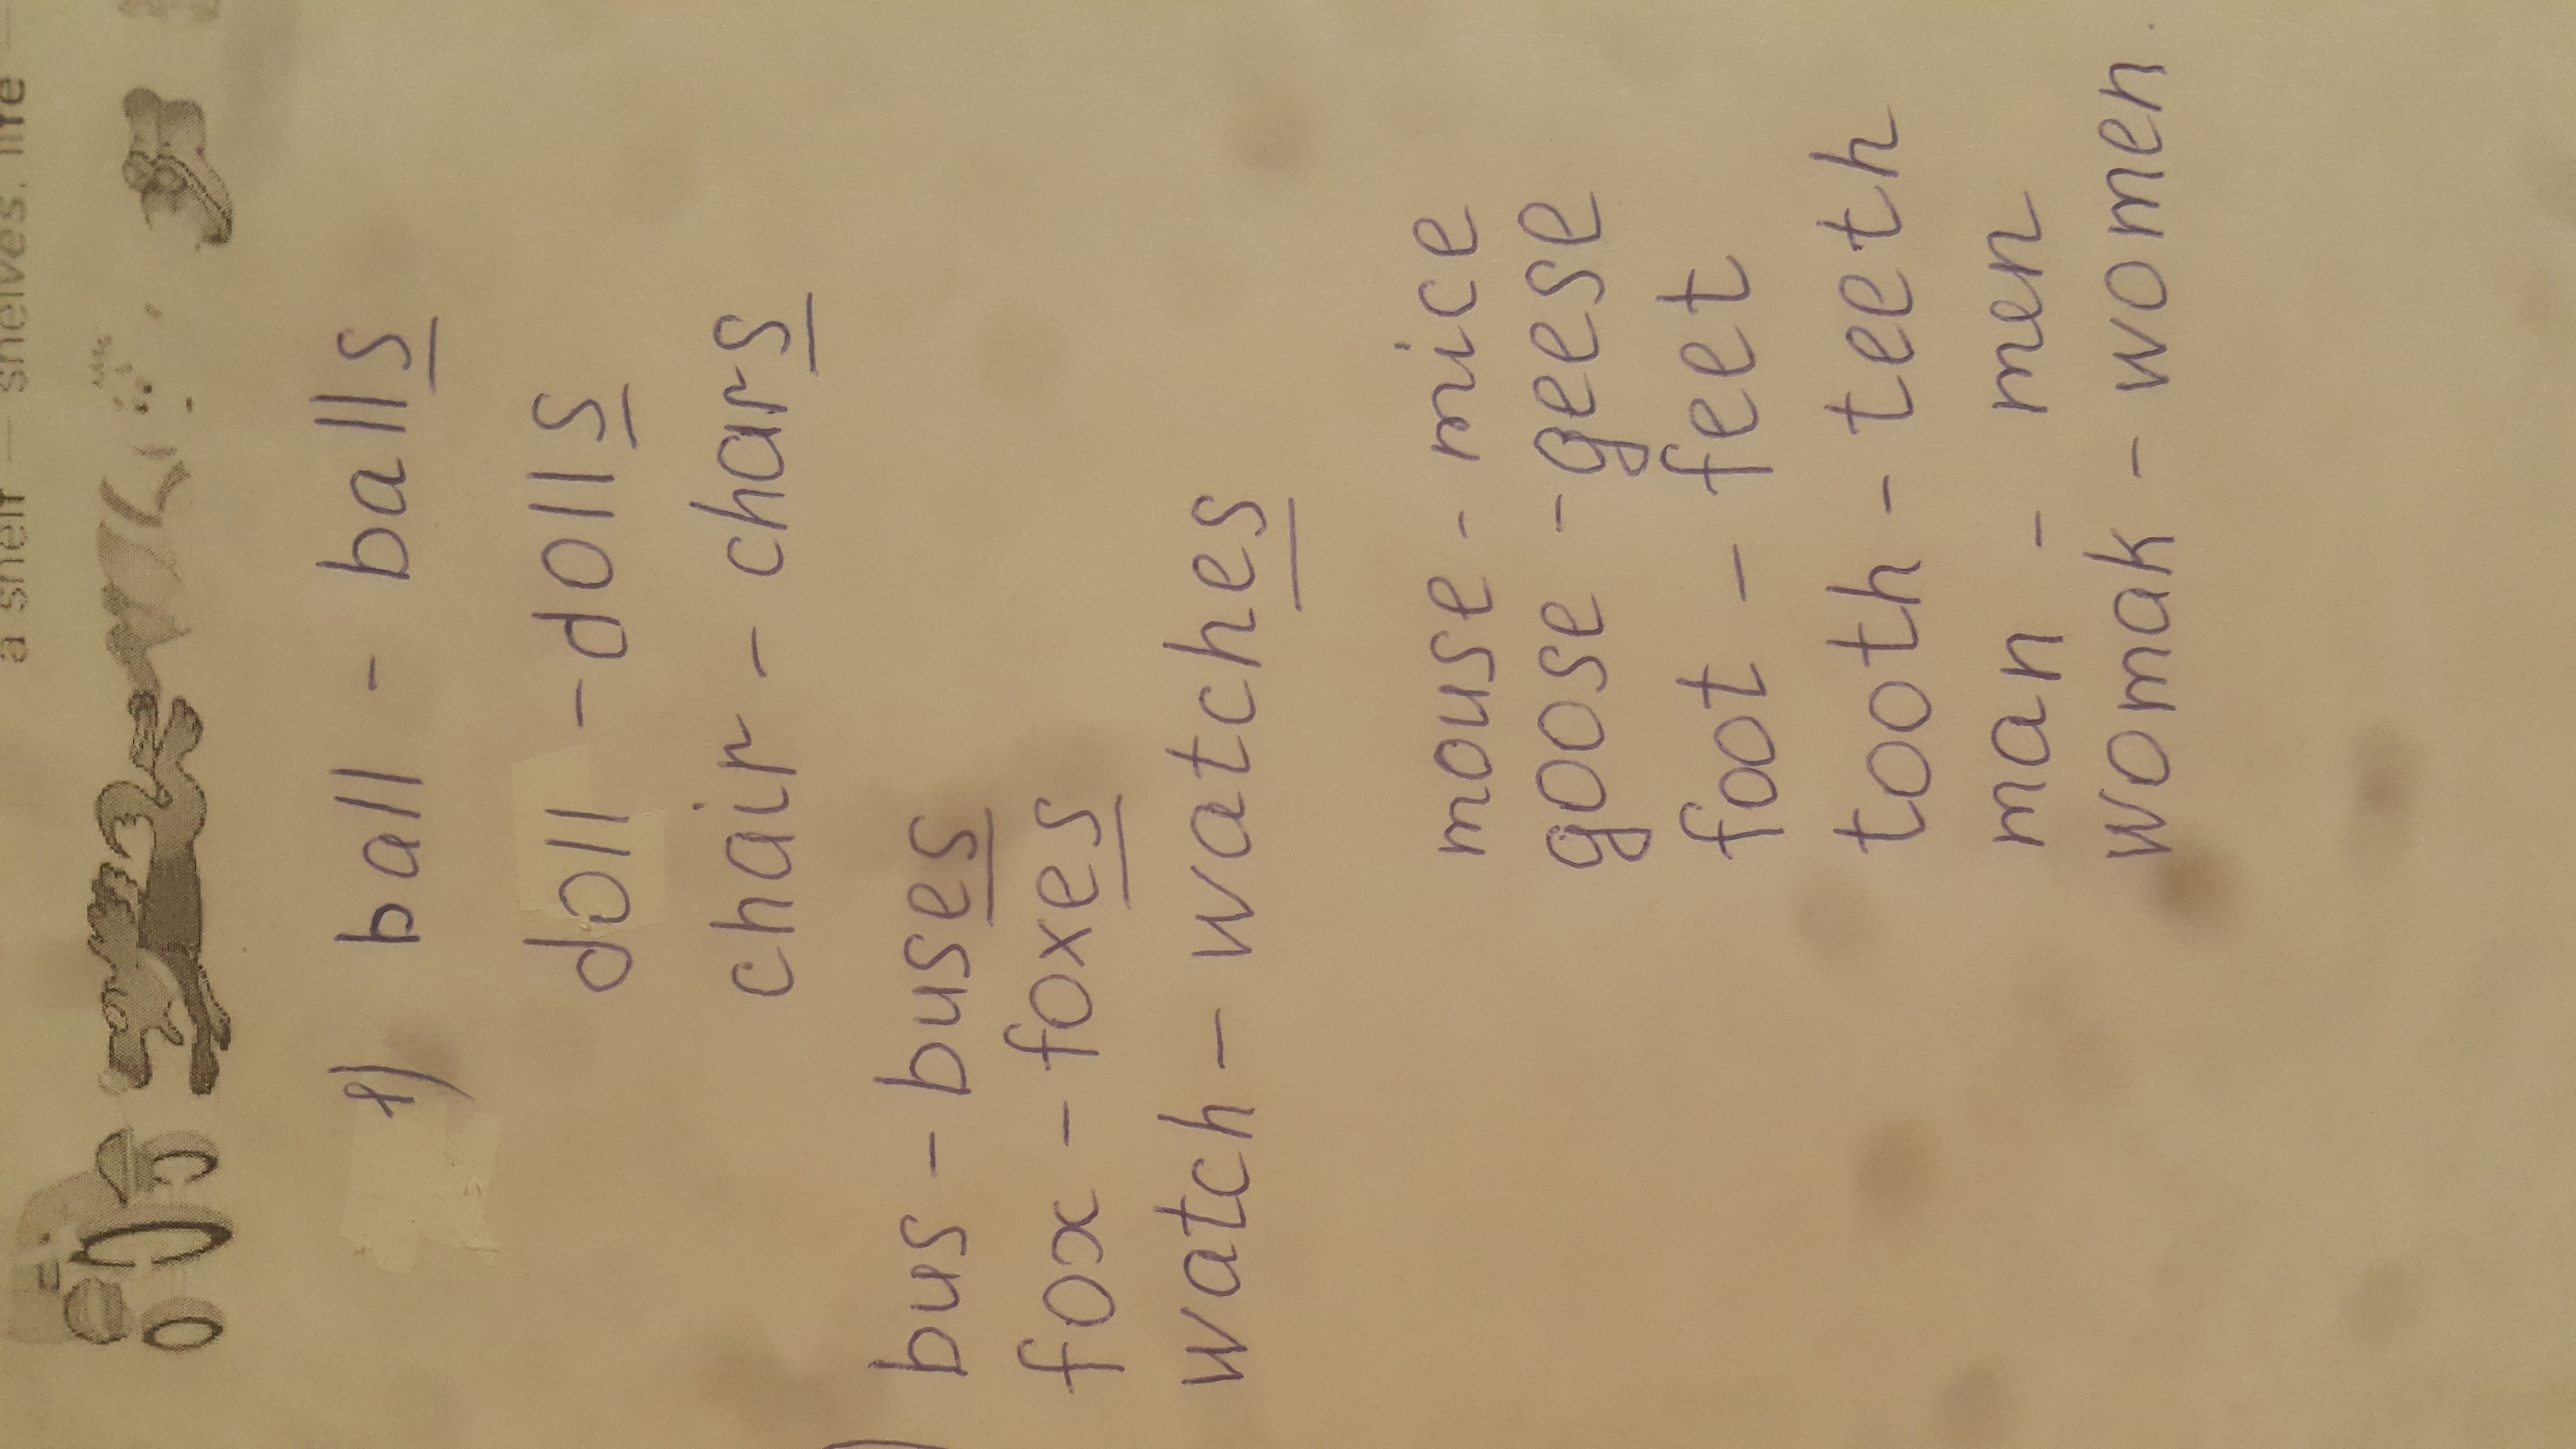 a shelf — shelves, life —
1) ball - balls
doll - dolls
chair - chars
) bus - buses
fox - foxes
watch - watches
mouse - mice
goose - geese
foot - feet
tooth - teeth
man - men
womak - women.